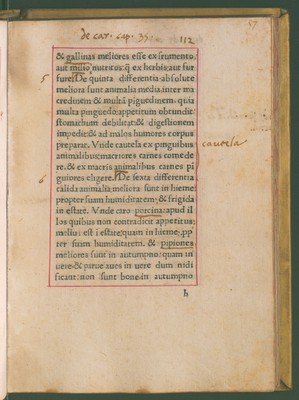 de car. cap. 35. 112
57
& gallinas meliores esse ex frumento
aut milio nutritos: q̃ ex herbis aut fur
fure. De quinta differentia absolute
5
meliora sunt animalia media. inter ma
credinem & multã piguedinem. quia
multa pinguedo appetitum obtundit
stomachum debilitat: & digestionem
impedit: & ad malos humores corpus
preparat. Vnde cautela ex pinguibus
cautela
animalibus: macriores carnes comede
re. & ex macris animalibus carnes pi
guiores eligere. De sexta differentia
6
calida animalia meliora sunt in hieme
propter suam humiditatem: & frigida
in estate. Vnde caro porcina: apud il
los quibus non contradicit appetitus:
melius est i estate: quam in hieme: pp
ter suam humiditatem. & pipiones
meliores sunt in autumpno: quam in
uere: & parue aues in uere dum nidi
ficant: non sunt bone. in autumpno
h